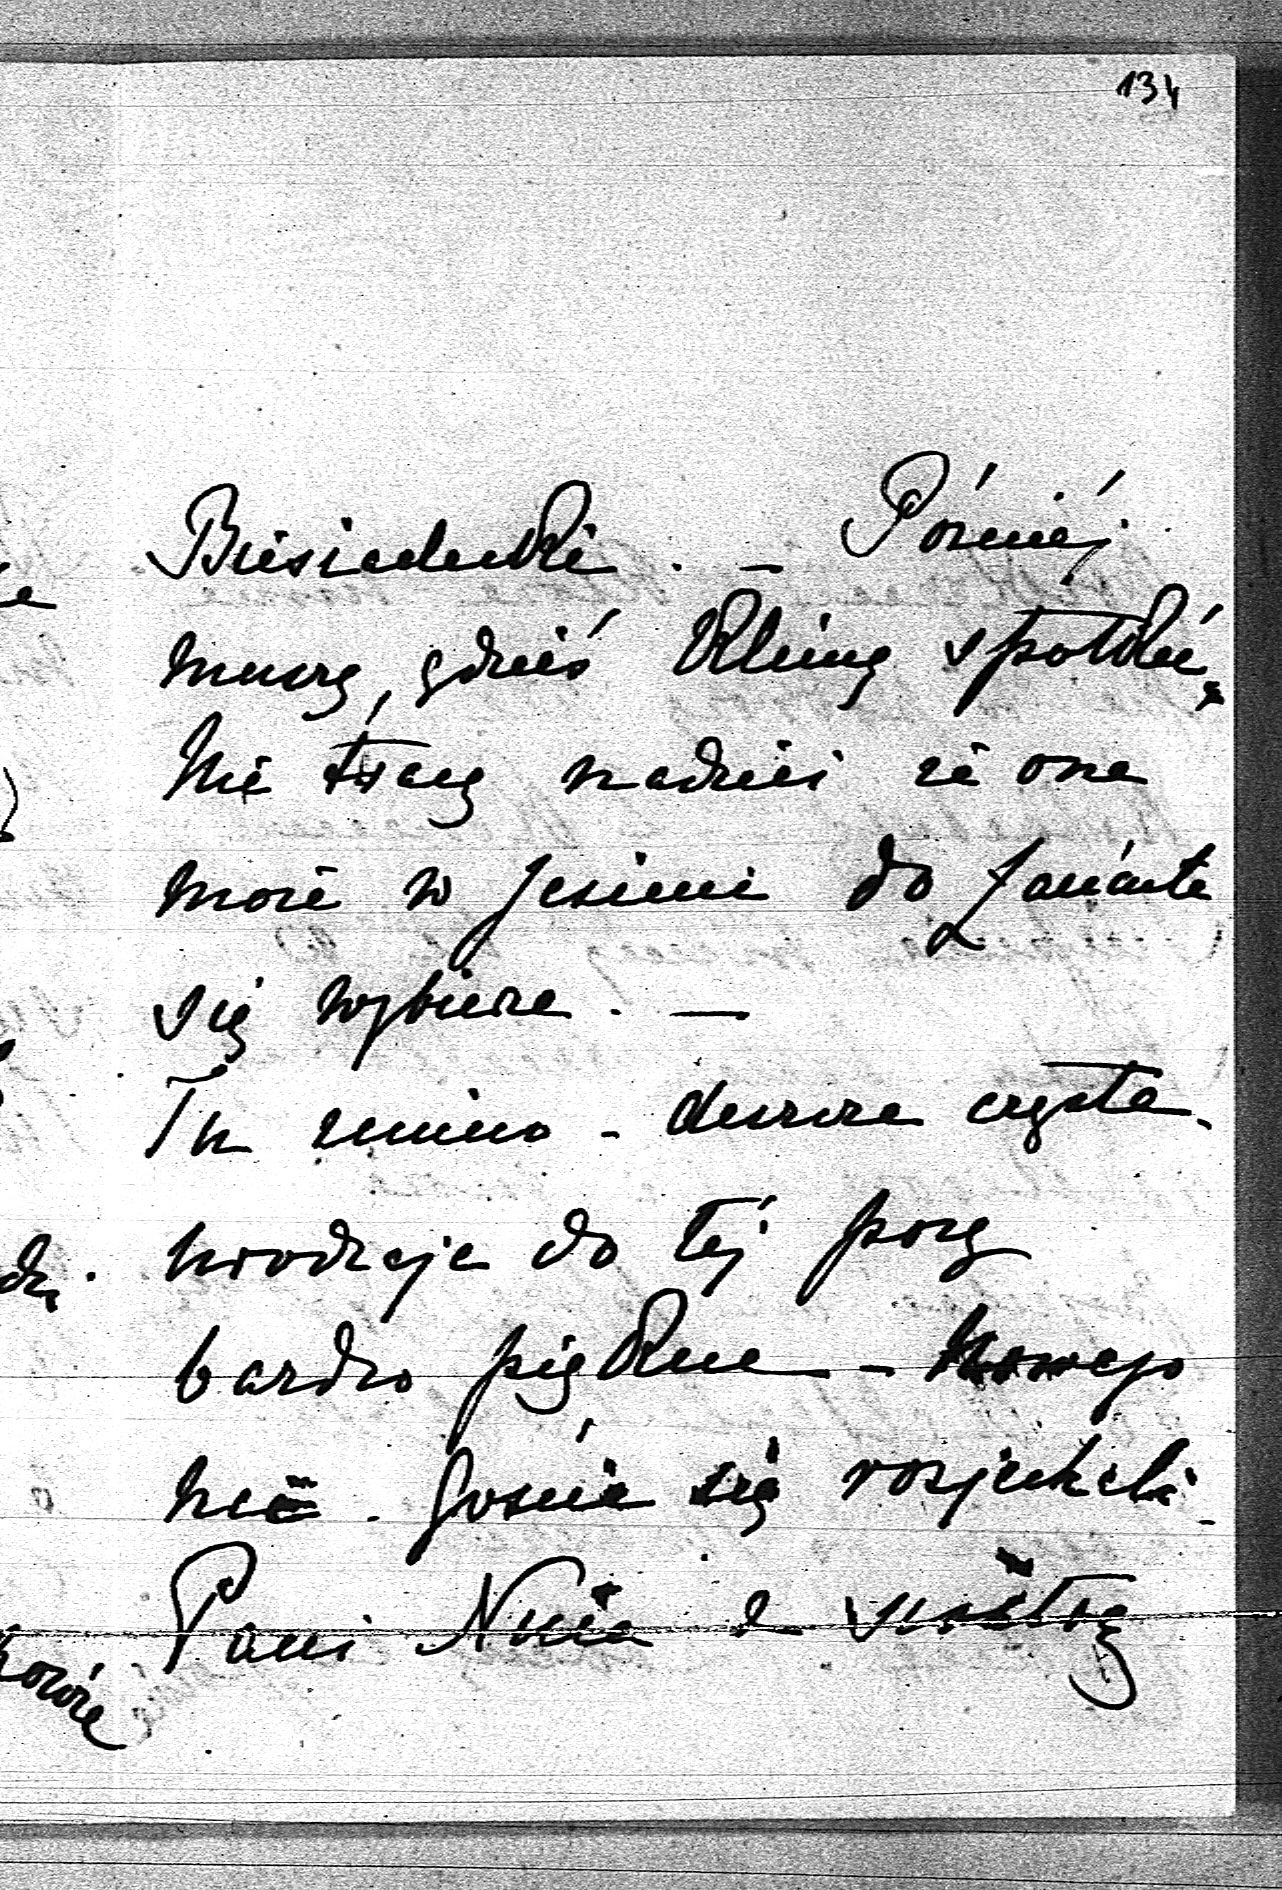 134
Biesiadecki. – Pózniéj
muszę, gdzieś Klimę spotkać,
Nie tracę nadziei że ona
może w jesieni do Łańcuta
się wybierze. —
Tu zimno – deszcze częste –
urodzaje do téj pory
bardzo piękne – Nowego
nic. Goście się rozjechali –
Pani Nusia z siostrą